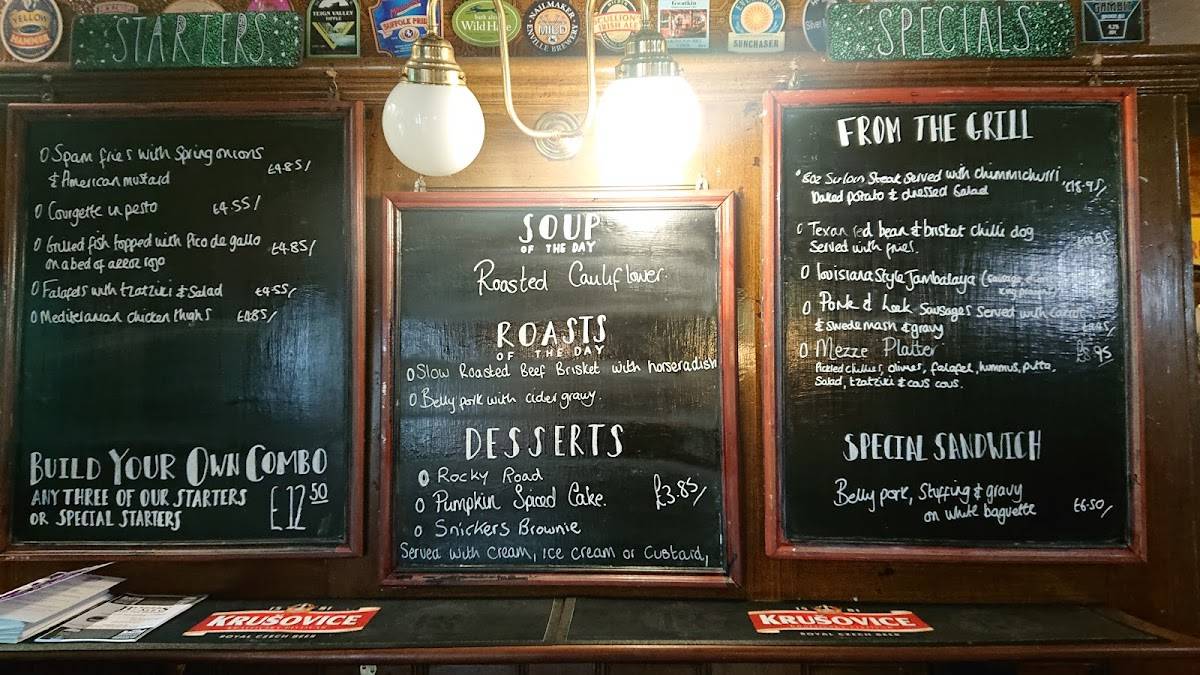 YELLOW
HAMMER
TEIGN VALLEY
TIPPLE
SUFFOLK PRIDE
Wild Hare
NAILMAKER
MILD
SUNCHASER
STARTERS
SPECIALS
O Spam fries with Spring onions
& American mustard £4.85/
O Courgette in pesto £4.55/
O Grilled fish topped with Pico de gallo
on a bed of arroz rojo £4.85/
O Falafels with tzatziki & Salad £4.55/
O Mediteranian chicken thighs £4.85/
BUILD YOUR OWN COMBO
ANY THREE OF OUR STARTERS
OR SPECIAL STARTERS £12.50
SOUP
OF THE DAY
Roasted Cauliflower.
ROASTS
OF THE DAY
O Slow Roasted Beef Brisket with horseradish
O Belly pork with cider gravy.
DESSERTS
O Rocky Road
O Pumpkin Spiced Cake. £3.85/
O Snickers Brownie
Served with Cream, ice cream or Custard,
FROM THE GRILL
8oz Surloin Steak Served with chimmichurri
Baked potato & dressed Salad
O Texan red bean & brisket chilli dog
Served with fries.
O Louisiana Style Jambalaya
O Pork & Leek Sausages Served with Carrot
& Swede mash & gravy
O Mezze Platter
Pickled chillies, olives, falafel, hummus, pitta,
Salad, tzatziki & cous cous.
SPECIAL SANDWICH
Belly pork, Stuffing & gravy
on white baguette £6.50/
1581
KRUŠOVICE
ROYAL CZECH BEER
1581
KRUŠOVICE
ROYAL CZECH BEER